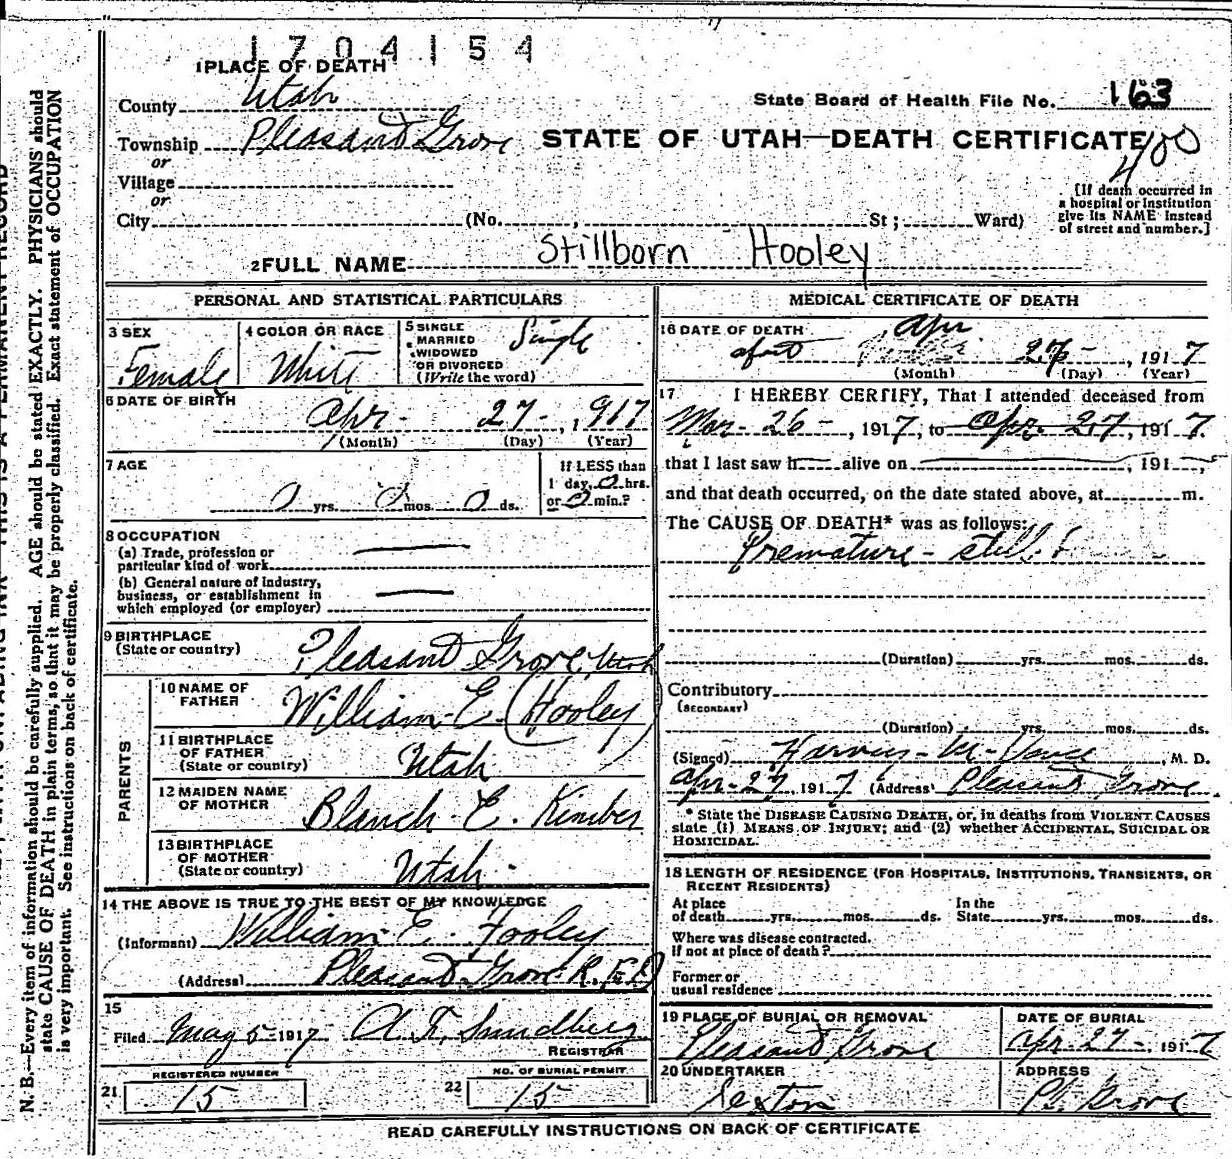 1704154
1 PLACE OF DEATH
County Utah
State Board of Health File No. 163
Township Pleasant Grove
STATE OF UTAH—DEATH CERTIFICATE
400
or
Village
or
City (No. , St; Ward)
[If death occurred in
a hospital or institution
give its NAME instead
of street and number.]
2 FULL NAME Stillborn Hooley
PERSONAL AND STATISTICAL PARTICULARS
3 SEX
Female
4 COLOR OR RACE
White
5 SINGLE
MARRIED
WIDOWED
OR DIVORCED
(Write the word)
Single
6 DATE OF BIRTH
Apr - 27 - , 1917
(Month) (Day) (Year)
7 AGE
0 yrs. 0 mos. 0 ds.
If LESS than
1 day, 0 hrs.
or 0 min.?
8 OCCUPATION
(a) Trade, profession or
particular kind of work
(b) General nature of industry,
business, or establishment in
which employed (or employer)
9 BIRTHPLACE
(State or country)
Pleasant Grove, Utah
PARENTS
10 NAME OF
FATHER
William E. (Hooley)
11 BIRTHPLACE
OF FATHER
(State or country)
Utah
12 MAIDEN NAME
OF MOTHER
Blanch E. Kimber
13 BIRTHPLACE
OF MOTHER
(State or country)
Utah
14 THE ABOVE IS TRUE TO THE BEST OF MY KNOWLEDGE
(Informant) William E. Hooley
(Address) Pleasant Grove R.F.D.
15
Filed May 5 1917 A. F. Sundberg
REGISTRAR
21 REGISTERED NUMBER
15
22 NO. OF BURIAL PERMIT
15
MEDICAL CERTIFICATE OF DEATH
16 DATE OF DEATH
Apr 27 , 1917
(Month) (Day) (Year)
17 I HEREBY CERTIFY, That I attended deceased from
Mar - 26 - , 1917, to Apr. 27, 1917.
that I last saw h alive on , 191 ,
and that death occurred, on the date stated above, at m.
The CAUSE OF DEATH* was as follows:
Premature - still
(Duration) yrs. mos. ds.
Contributory
(SECONDARY)
(Duration) yrs. mos. ds.
(Signed) M. , M. D.
Apr - 27, 1917 (Address) Pleasant Grove.
* State the DISEASE CAUSING DEATH, or, in deaths from VIOLENT CAUSES
state (1) MEANS OF INJURY; and (2) whether ACCIDENTAL, SUICIDAL OR
HOMICIDAL.
18 LENGTH OF RESIDENCE (FOR HOSPITALS, INSTITUTIONS, TRANSIENTS, OR
RECENT RESIDENTS)
At place
of death yrs. mos. ds.
In the
State yrs. mos. ds.
Where was disease contracted.
if not at place of death?
Former or
usual residence
19 PLACE OF BURIAL OR REMOVAL
Pleasant Grove
DATE OF BURIAL
Apr - 27 - , 1917
20 UNDERTAKER
Sexton
ADDRESS
Pl. Grove
READ CAREFULLY INSTRUCTIONS ON BACK OF CERTIFICATE
N. B.—Every item of information should be carefully supplied. AGE should be stated EXACTLY. PHYSICIANS should
state CAUSE OF DEATH in plain terms, so that it may be properly classified. Exact statement of OCCUPATION
is very important. See instructions on back of certificate.